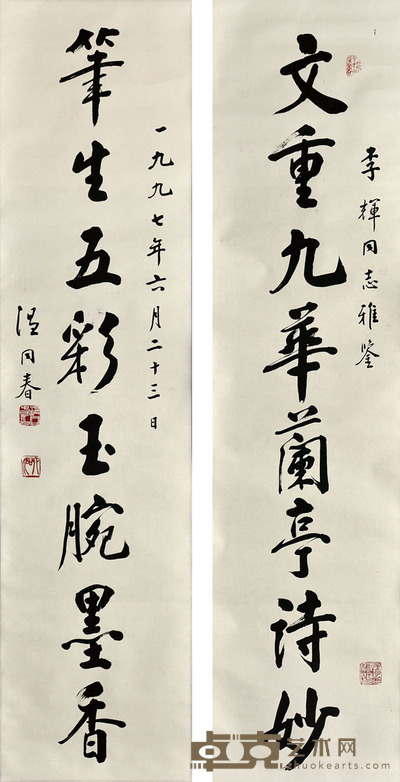 文重九華蘭亭诗妙
李輝同志雅鉴
筆生五彩玉腕墨香
一九九七年六月二十三日
温同春
点艺术网
zhuokearts.com